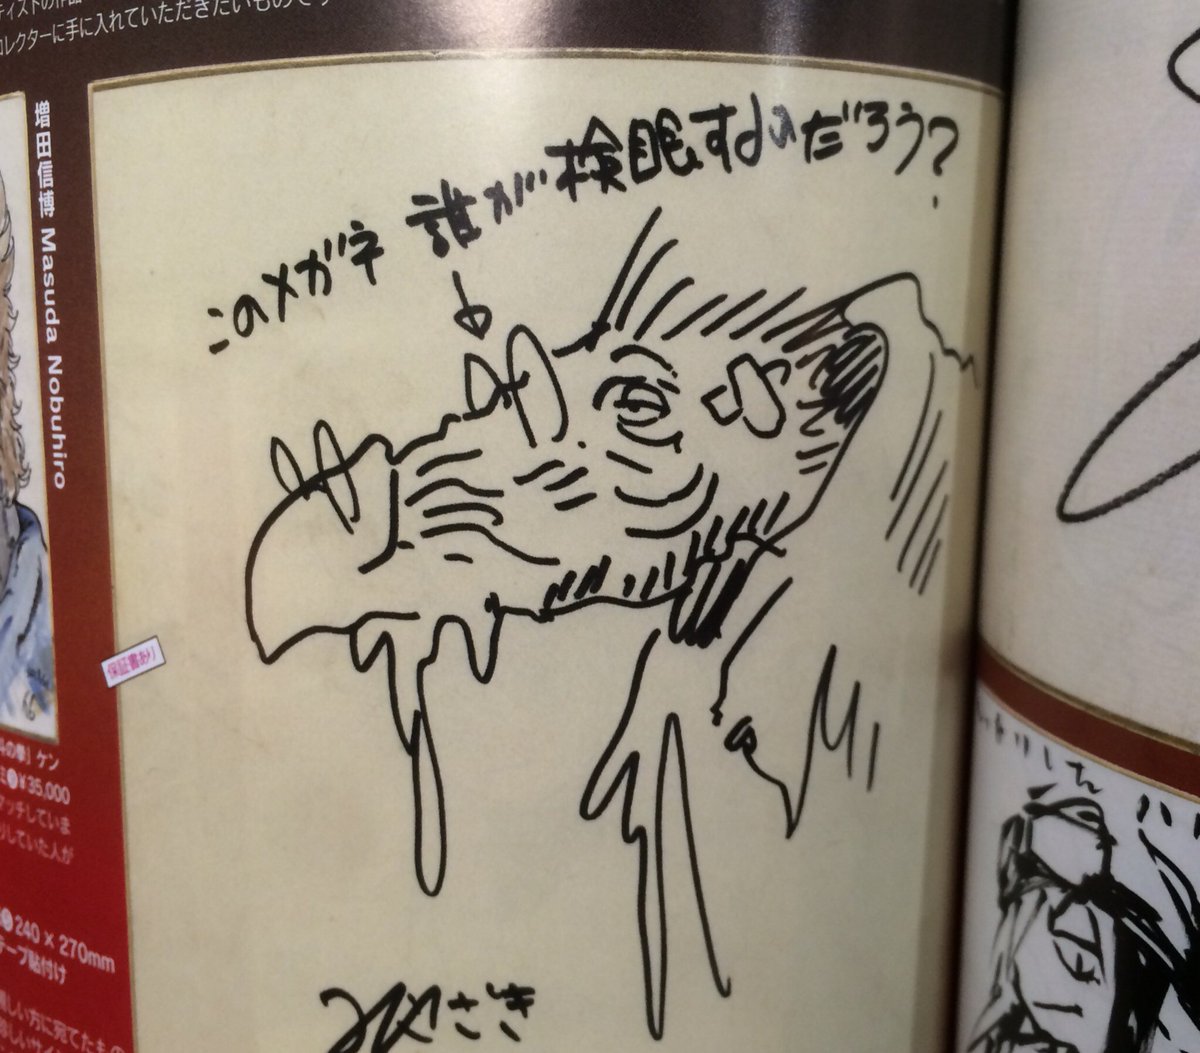 ティストの作品
コレクターに手に入れていただきたいものです
増田信博 Masuda Nobuhiro
このメガネ 誰が検眠するのだろう?
保証書あり
斗の拳』ケン
¥35,000
タッチしていま
リしていた人が
240×270mm
テープ貼付け
嬉しい方に宛てたもの
みやさき